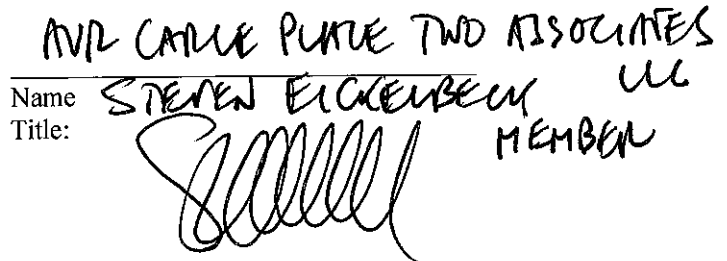 AVR CARLE PLACE TWO ASSOCIATES LLC
Name STEVEN EICKELBECK
Title: MEMBER